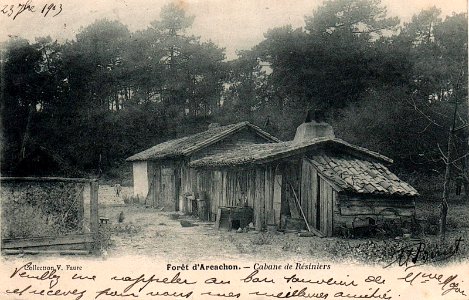 23 7bre 1903
Collection V. Faure
Forêt d'Arcachon. - Cabane de Résiniers
Veuillez me rappeler au bon souvenir de
et recevez pour vous mes meilleures amitiés